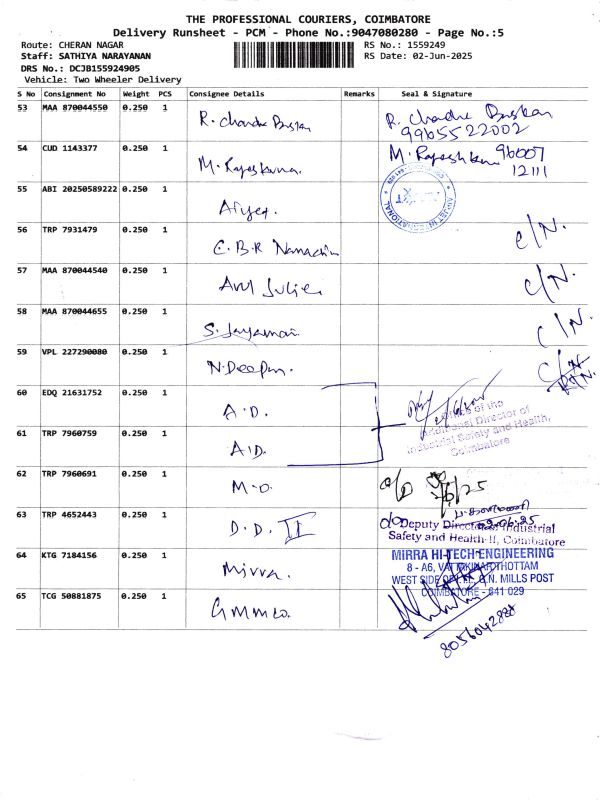 THE PROFESSIONAL COURIERS, COIMBATORE
Delivery Runsheet - PCM - Phone No.:9047080280 - Page No.:5
Route: CHERAN NAGAR
RS No.: 1559249
Staff: SATHIYA NARAYANAN
RS Date: 02-Jun-2025
DRS No.: DCJB155924905
Vehicle: Two Wheeler Delivery
S No Consignment No Weight PCS Consignee Details Remarks Seal & Signature
53 MAA 870044550 0.250 1
R. Chandra
R. Chandra
9965522002
54 CUD 1143377 0.250 1
M. Rajeshkumar
M. Rajeshkumar 96007
12111
55 ABI 20250589222 0.250 1
INTERNATIONAL
56 TRP 7931479 0.250 1
C.B.R
C/N.
57 MAA 870044540 0.250 1
C/N.
58 MAA 870044655 0.250 1
S. Jayamani
C/N.
59 VPL 227290080 0.250 1
N. Deepan.
C/N.
60 EDQ 21631752 0.250 1
A.D.
Office of the
Additional Director of
Industrial Safety and Health,
Coimbatore
61 TRP 7960759 0.250 1
A.D.
62 TRP 7960691 0.250 1
M.O.
63 TRP 4652443 0.250 1
D.D. II
Deputy Director Industrial
Safety and Health-II, Coimbatore
64 KTG 7184156 0.250 1
Mirra.
MIRRA HI-TECH ENGINEERING
8 - A6, THOTTAM
WEST SIDE G.N. MILLS POST
COIMBATORE - 641 029
65 TCG 50881875 0.250 1
Gmmco.